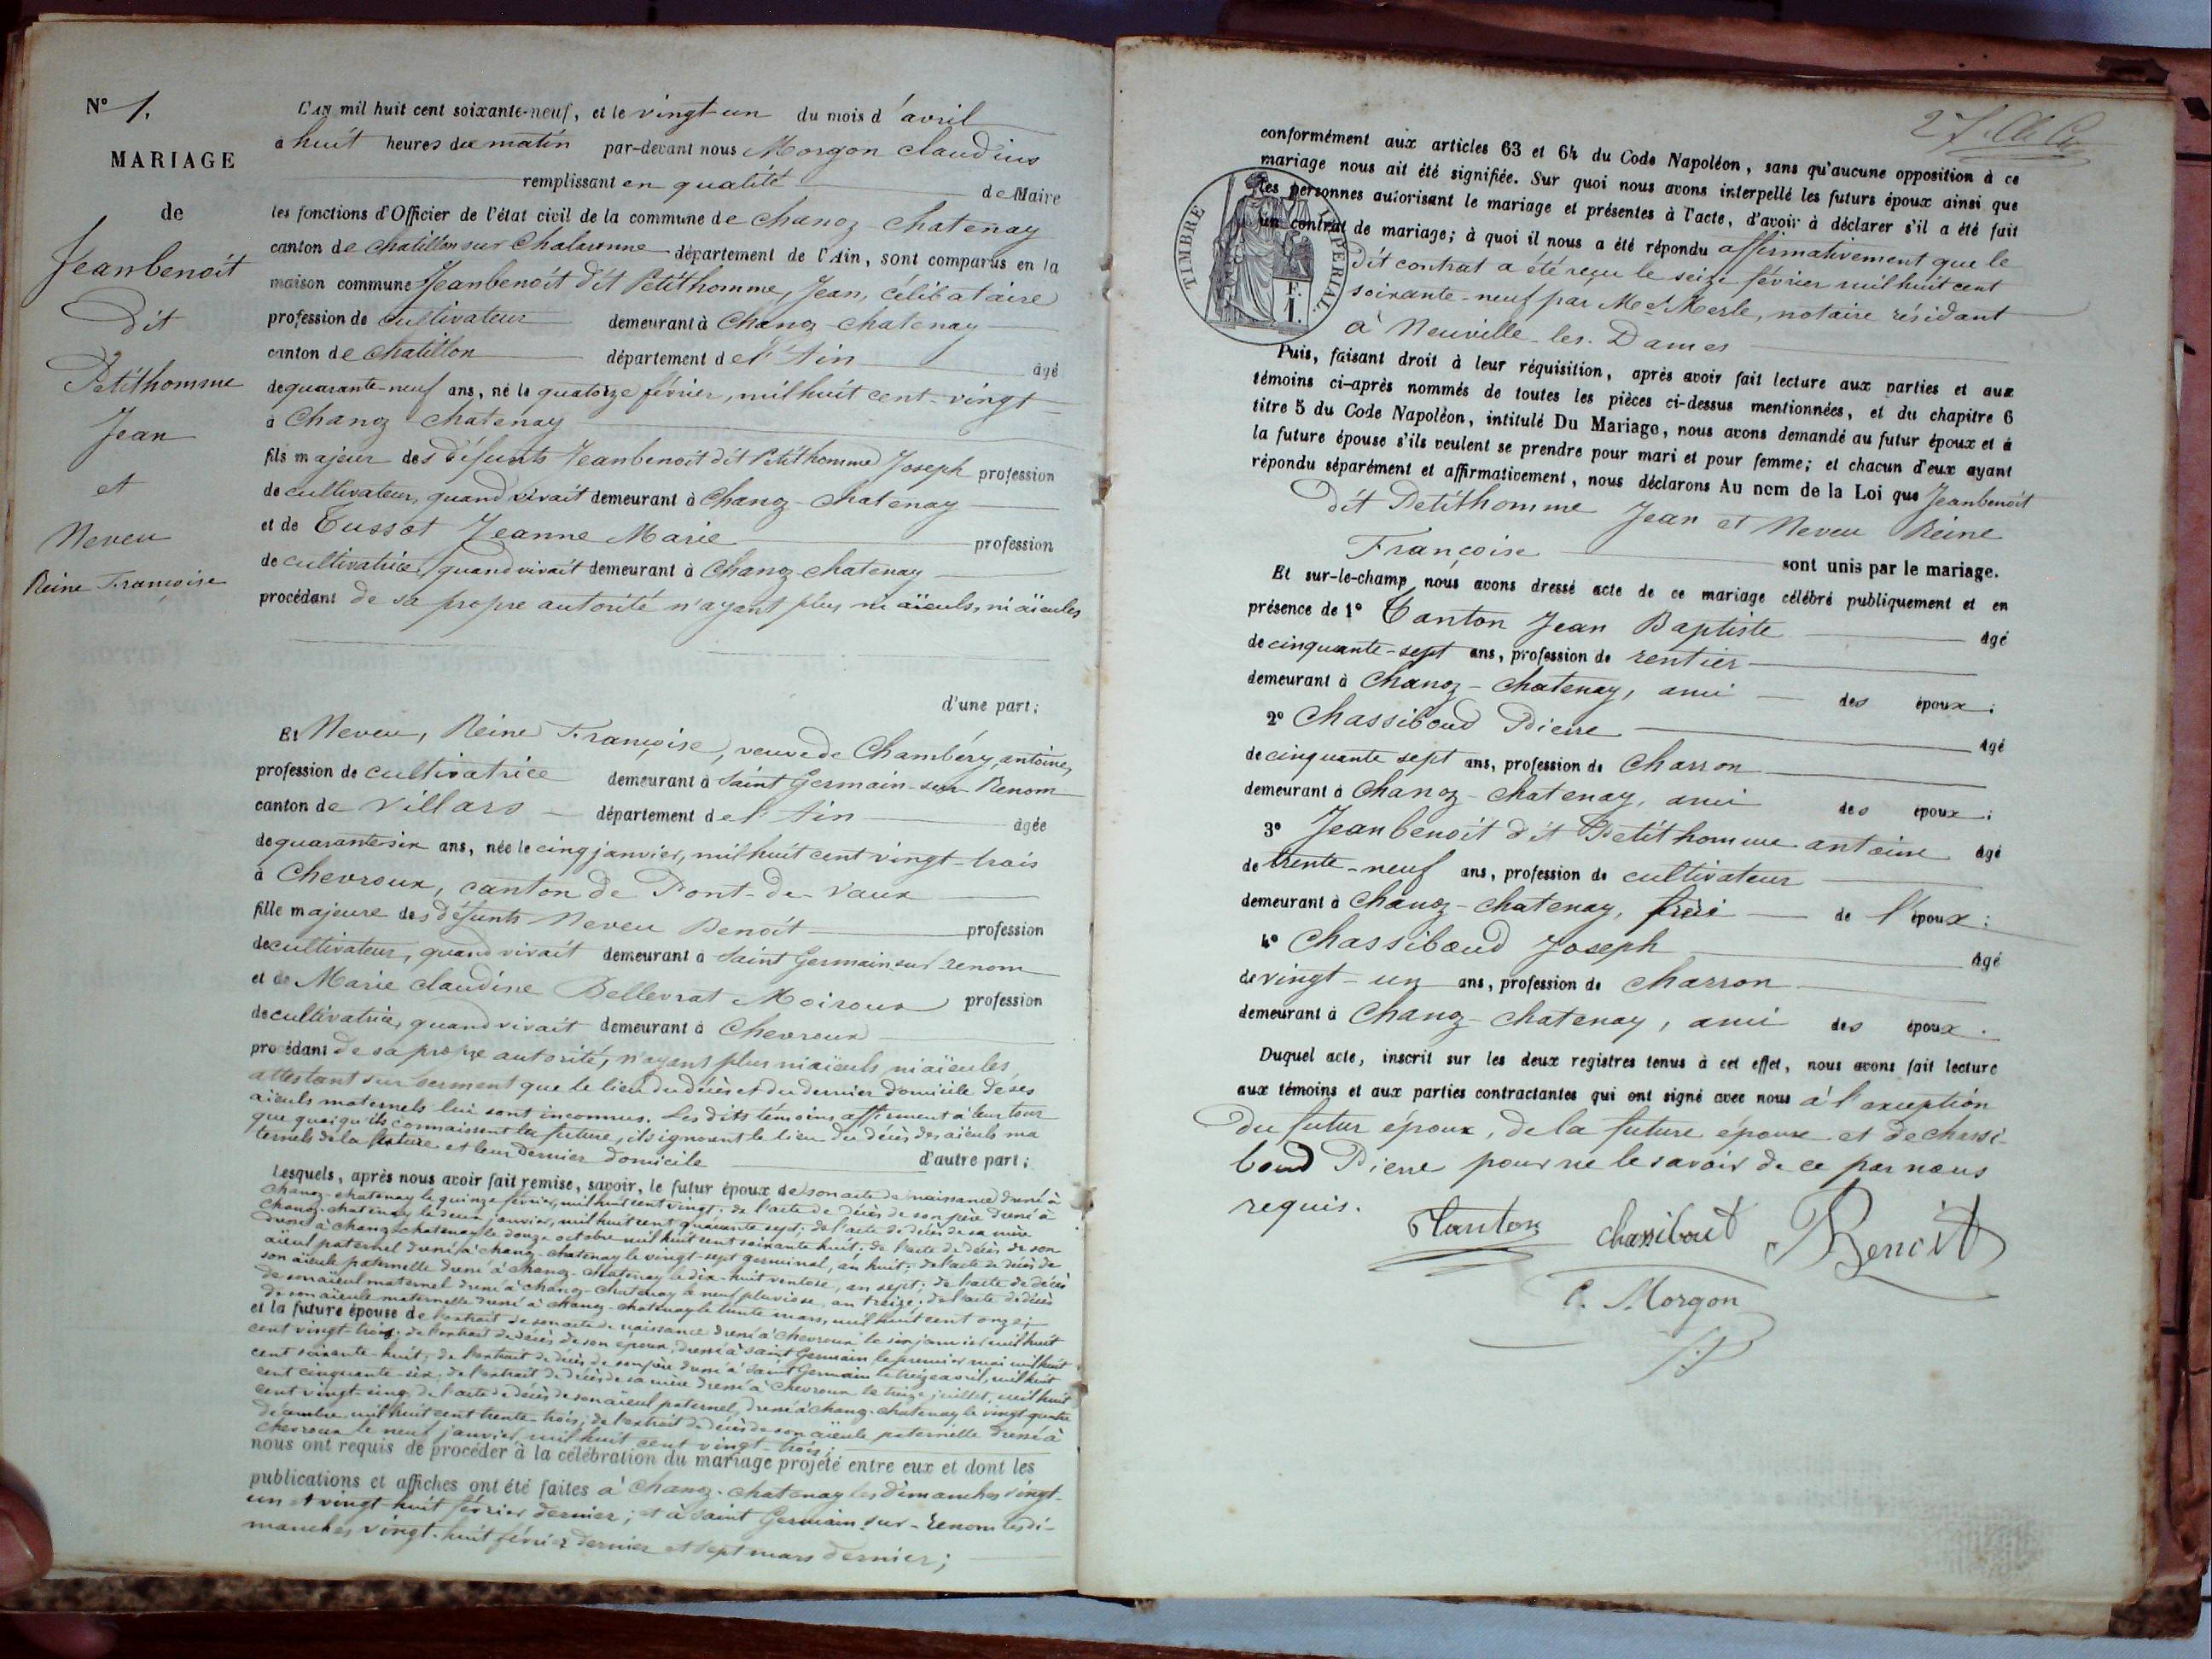 N° 1.
MARIAGE
de
Jeanbenoît
dit
Petithomme
Jean
et
Neveu
Reine Françoise
L'AN mil huit cent soixante-neuf, et le vingt-un du mois d'avril
à huit heures du matin par-devant nous Morgon Claudius
remplissant en qualité de Maire
les fonctions d'Officier de l'état civil de la commune de Chanoz-Chatenay
canton de Chatillon sur Chalaronne département de l'Ain, sont comparus en la
maison commune Jeanbenoît dit Petithomme, Jean, célibataire
profession de cultivateur demeurant à Chanoz-Chatenay
canton de Chatillon département de l'Ain âgé
de quarante-neuf ans, né le quatorze février, mil huit cent-vingt
à Chanoz Chatenay
fils majeur des défunts Jeanbenoît dit Petithomme Joseph profession
de cultivateur, quand vivait demeurant à Chanoz-Chatenay
et de Tussot Jeanne Marie profession
de cultivatrice, quand vivait demeurant à Chanoz-Chatenay
procédant de sa propre autorité n'ayant plus ni aïeuls, ni aïeules
d'une part;
Et Neveu, Reine Françoise, veuve de Chambéry, antoine,
profession de cultivatrice demeurant à Saint Germain-sur-Renom
canton de Villars département de l'Ain âgée
de quarante-six ans, née le cinq janvier, mil huit cent vingt-trois
à Chevroux, canton de Pont-de-Vaux
fille majeure des défunts Neveu Benoît profession
de cultivateur, quand vivait demeurant à Saint Germain sur-renom
et de Marie Claudine Bellevrat Moiroux profession
de cultivatrice, quand vivait demeurant à Chevroux
procédant de sa propre autorité, n'ayant plus ni aïeuls, ni aïeules,
attestant sur serment que le lieu du décès et du dernier domicile de ses
aïeuls maternels lui sont inconnus. Les dits témoins affirment à leur tour
que quoiqu'ils connaissent la future, ils ignorent le lieu du décès des aïeuls ma
ternels de la future et leur dernier domicile d'autre part;
Lesquels, après nous avoir fait remise, savoir, le futur époux de son acte de naissance dressé à
Chanoz-chatenay le quinze février, mil huit cent vingt; de l'acte de décès de son père dressé à
Chanoz-chatenay le deux janvier, mil huit cent quarante sept; de l'acte de décès de sa mère
dressé à Chanoz-chatenay le douze octobre mil huit cent soixante huit; de l'acte de décès de son
aïeul paternel dressé à chanoz-chatenay le vingt-sept germinal, an huit; de l'acte de décès de
son aïeule paternelle dressé à chanoz-chatenay le dix-huit ventose, an sept; de l'acte de décès
de son aïeul maternel dressé à chanoz-chatenay le neuf pluviose, an treize; de l'acte de décès
de son aïeule maternelle dressé à chanoz-chatenay le trente mars, mil huit cent onze;
et la future épouse de l'extrait de son acte de naissance dressé à Chevroux le six janvier mil huit
cent vingt-trois; de l'extrait de décès de son époux, dressé à Saint Germain le premier mai mil huit
cent soixante-huit; de l'extrait de décès de son père dressé à Saint Germain le treize avril, mil huit
cent cinquante-six; de l'extrait de décès de sa mère dressé à Chevroux le treize juillet, mil huit
cent vingt-cinq; de l'acte de décès de son aïeul paternel, dressé à Chanoz-chatenay le vingt quatre
décembre mil huit cent trente-trois; de l'extrait de décès de son aïeule paternelle dressé à
Chevroux le neuf janvier mil huit cent vingt-trois;
nous ont requis de procéder à la célébration du mariage projeté entre eux et dont les
publications et affiches ont été faites à Chanoz-chatenay les dimanches vingt-
un et vingt huit février dernier; et à Saint Germain-sur-renom les di-
manches vingt-huit février dernier et sept mars dernier;
conformément aux articles 63 et 64 du Code Napoléon, sans qu'aucune opposition à ce
mariage nous ait été signifiée. Sur quoi nous avons interpellé les futurs époux ainsi que
les personnes autorisant le mariage et présentes à l'acte, d'avoir à déclarer s'il a été fait
un contrat de mariage; à quoi il nous a été répondu affirmativement que le
dit contrat a été reçu le seize février mil huit cent
soixante-neuf par Me Merle, notaire résidant
à Neuville-les-Dames
TIMBRE IMPÉRIAL
F.
1.
Puis, faisant droit à leur réquisition, après avoir fait lecture aux parties et aux
témoins ci-après nommés de toutes les pièces ci-dessus mentionnées, et du chapitre 6
titre 5 du Code Napoléon, intitulé Du Mariage, nous avons demandé au futur époux et à
la future épouse s'ils veulent se prendre pour mari et pour femme; et chacun d'eux ayant
répondu séparément et affirmativement, nous déclarons Au nom de la Loi que Jeanbenoît
dit Petithomme Jean et Neveu Reine
Françoise sont unis par le mariage.
Et sur-le-champ nous avons dressé acte de ce mariage célébré publiquement et en
présence de 1° Tanton Jean Baptiste âgé
de cinquante-sept ans, profession de rentier
demeurant à Chanoz-Chatenay, ami des époux;
2° Chassiboud Pierre âgé
de cinquante sept ans, profession de Charron
demeurant à Chanoz-Chatenay, ami des époux;
3° Jeanbenoît dit Petithomme antoine âgé
de trente-neuf ans, profession de cultivateur
demeurant à Chanoz-Chatenay, frère de l'époux;
4° Chassiboud Joseph âgé
de vingt-un ans, profession de charron
demeurant à Chanoz-Chatenay, ami des époux.
Duquel acte, inscrit sur les deux registres tenus à cet effet, nous avons fait lecture
aux témoins et aux parties contractantes qui ont signé avec nous à l'exception
du futur époux, de la future épouse et de chassi-
boud Pierre pour ne le savoir de ce par nous
requis.
Tanton Chassiboud Benoit
C. Morgon